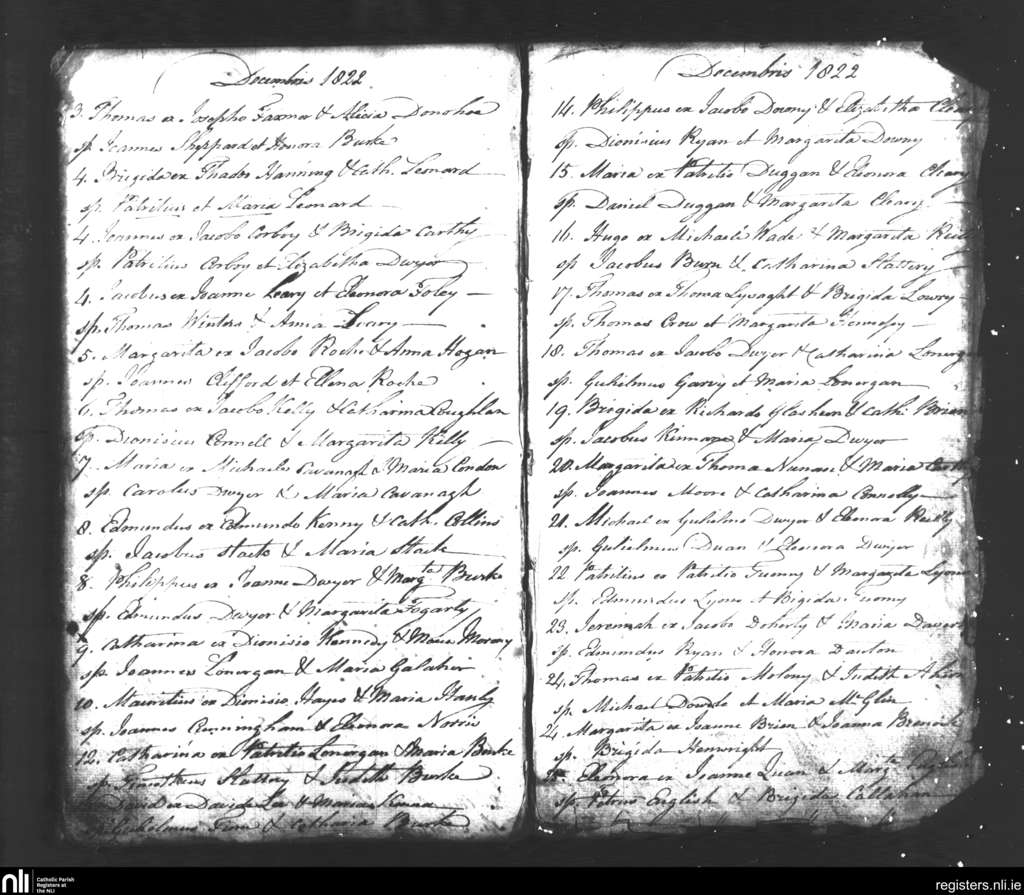 Decembris 1822
3. Thomas ex Josepho Farmer & Alicia Donohoe
sp. Joannes Sheppard et Honora Burke
4. Brigida ex Thadeo Hanning & Cath. Leonard
sp. Patritius et Maria Leonard
4. Joannes ex Jacobo Corboy & Brigida Carthy
sp. Patritius Corboy et Elizabitha Dwyer
4. Jacobus ex Joanne Leary et Eleonora Foley
sp. Thomas Winters & Anna Leary
5. Margarita ex Jacobo Roche & Anna Hogan
sp. Joannes Clifford et Ellena Roche
6. Thomas ex Jacobo Kelly & Catharina Coughlan
sp. Dionisius Connell & Margarita Kelly
7. Maria ex Michaele Cavanagh & Maria Condon
sp. Carolus Dwyer & Maria Cavanagh
8. Edmundus ex Edmundo Kenny & Cath. Collins
sp. Jacobus Stack & Maria Stack
8. Philippus ex Joanne Dwyer & Margta Burke
sp. Edmundus Dwyer & Margarita Fogarty
9. Catharina ex Dionisio Kennedy & Maria Morony
sp. Joannes Lonergan & Maria Galaher
10. Mauritius ex Dionisio Hayes & Maria Hanly
sp. Joannes Cunningham & Eleonora Norris
12. Catharina ex Patritio Lonergan & Maria Burke
sp. Timotheus Slattery & Judith Burke
David ex Davide Lee & Maria
Gulielmus & Catharina Burke
Decembris 1822
14. Philippus ex Jacobo Downy & Elizabitha Cleary
sp. Dionisius Ryan et Margarita Downy
15. Maria ex Patritio Duggan & Eleonora Cleary
sp. Daniel Duggan & Margarita Cleary
16. Hugo ex Michaele Wade & Margarita
sp. Jacobus Burn & Catharina Slattery
17. Thomas ex Thoma Lysaght & Brigida Lowry
sp. Thomas Crow et Margarita Hennessy
18. Thomas ex Jacobo Dwyer & Catharina Lonergan
sp. Gulielmus Garvy et Maria Lonergan
19. Brigida ex Richardo Glasheen & Cath. Brien
sp. Jacobus Kinnane & Maria Dwyer
20. Margarita ex Thoma Nunan & Maria
sp. Joannes Moore & Catharina Connolly
21. Michael ex Gulielmo Dwyer & Eleonora
sp. Gulielmus Duan & Eleonora Dwyer
22 Patritius ex Patritio & Margarita Lyons
sp. Edmundus Lyons et Bigida
23. Jeremiah ex Jacobo Doherty & Maria
sp. Edmundus Ryan & Honora Danton
24. Thomas ex Patritio Molony & Judith
sp. Michael Dowdo et Maria McGlin
24. Margarita ex Joanne Brien & Joanna
sp. Brigida Henwright
Eleonora ex Joanne Quan & Margta
sp. Petrus English & Brigida Callahan
nli
Catholic Parish
Registers at
the NLI
registers.nli.ie